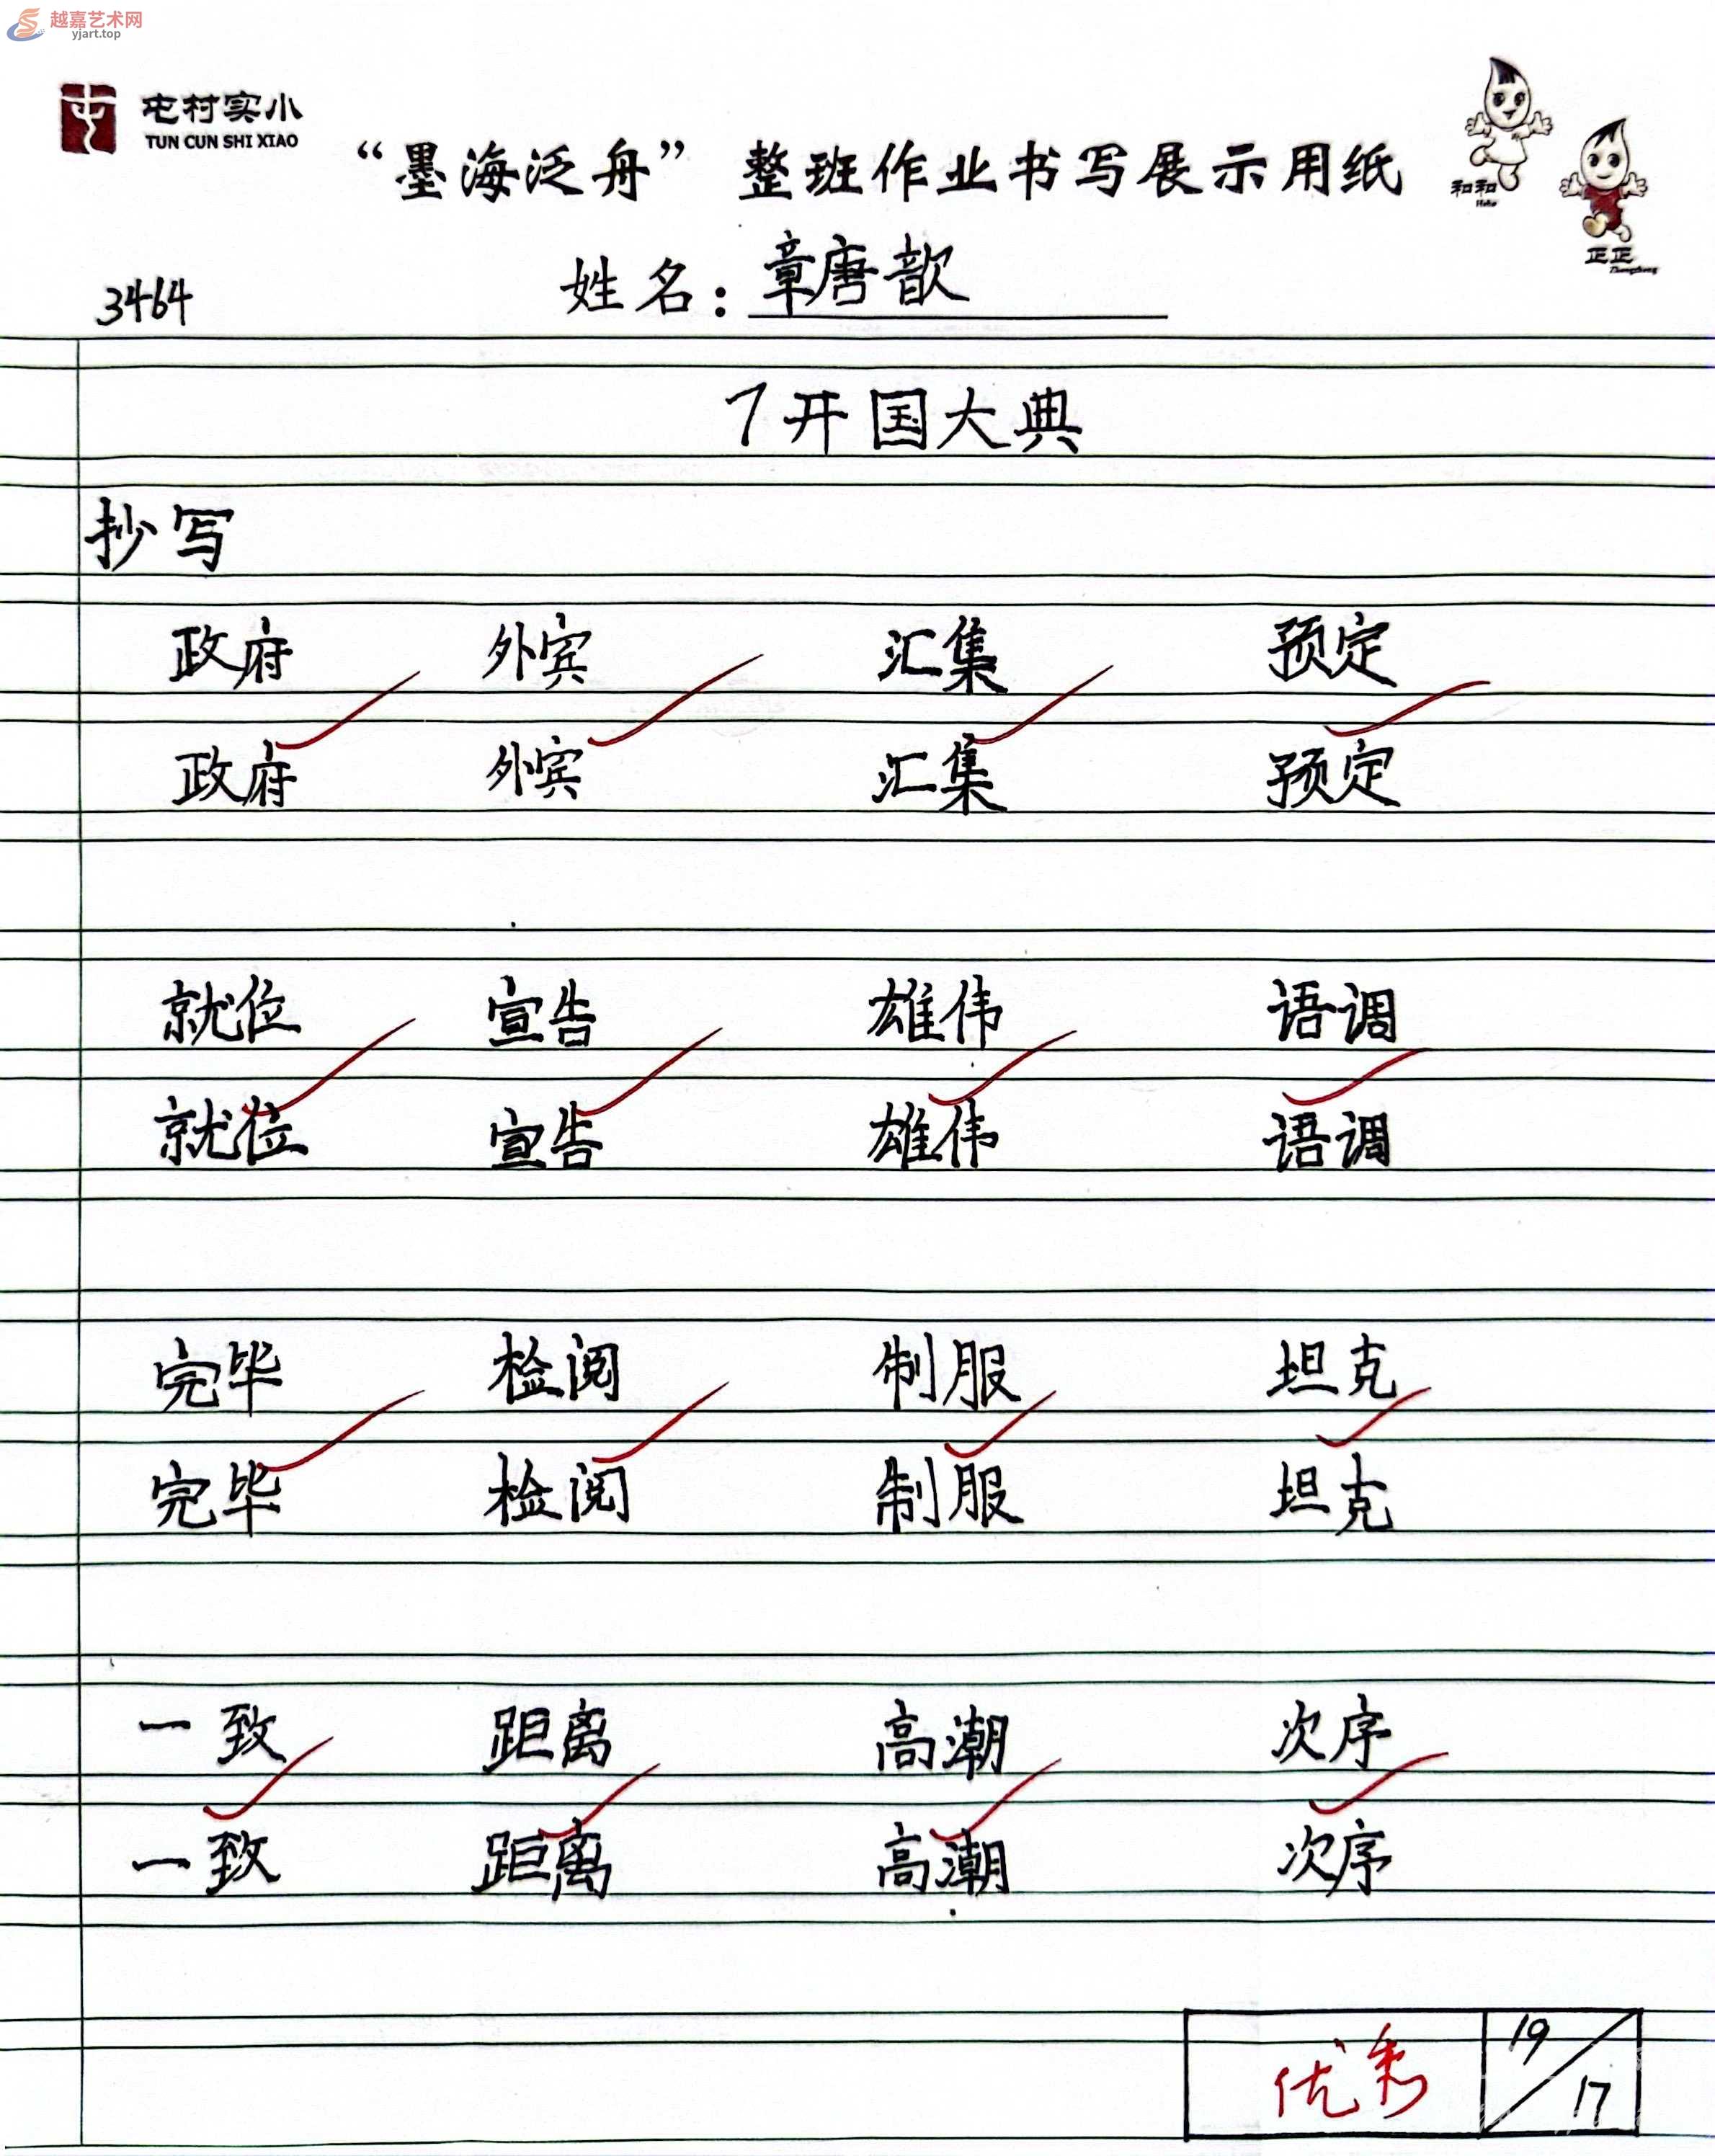 越嘉艺术网
yjart.top
屯村实小
TUN CUN SHI XIAO
“墨海泛舟” 整班作业书写展示用纸
和和
HeHe
正正
Zhengzheng
3464 姓名：章唐歆
7 开国大典
抄写
政府 外宾 汇集 预定
政府 外宾 汇集 预定
就位 宣告 雄伟 语调
就位 宣告 雄伟 语调
完毕 检阅 制服 坦克
完毕 检阅 制服 坦克
一致 距离 高潮 次序
一致 距离 高潮 次序
优秀 19/17